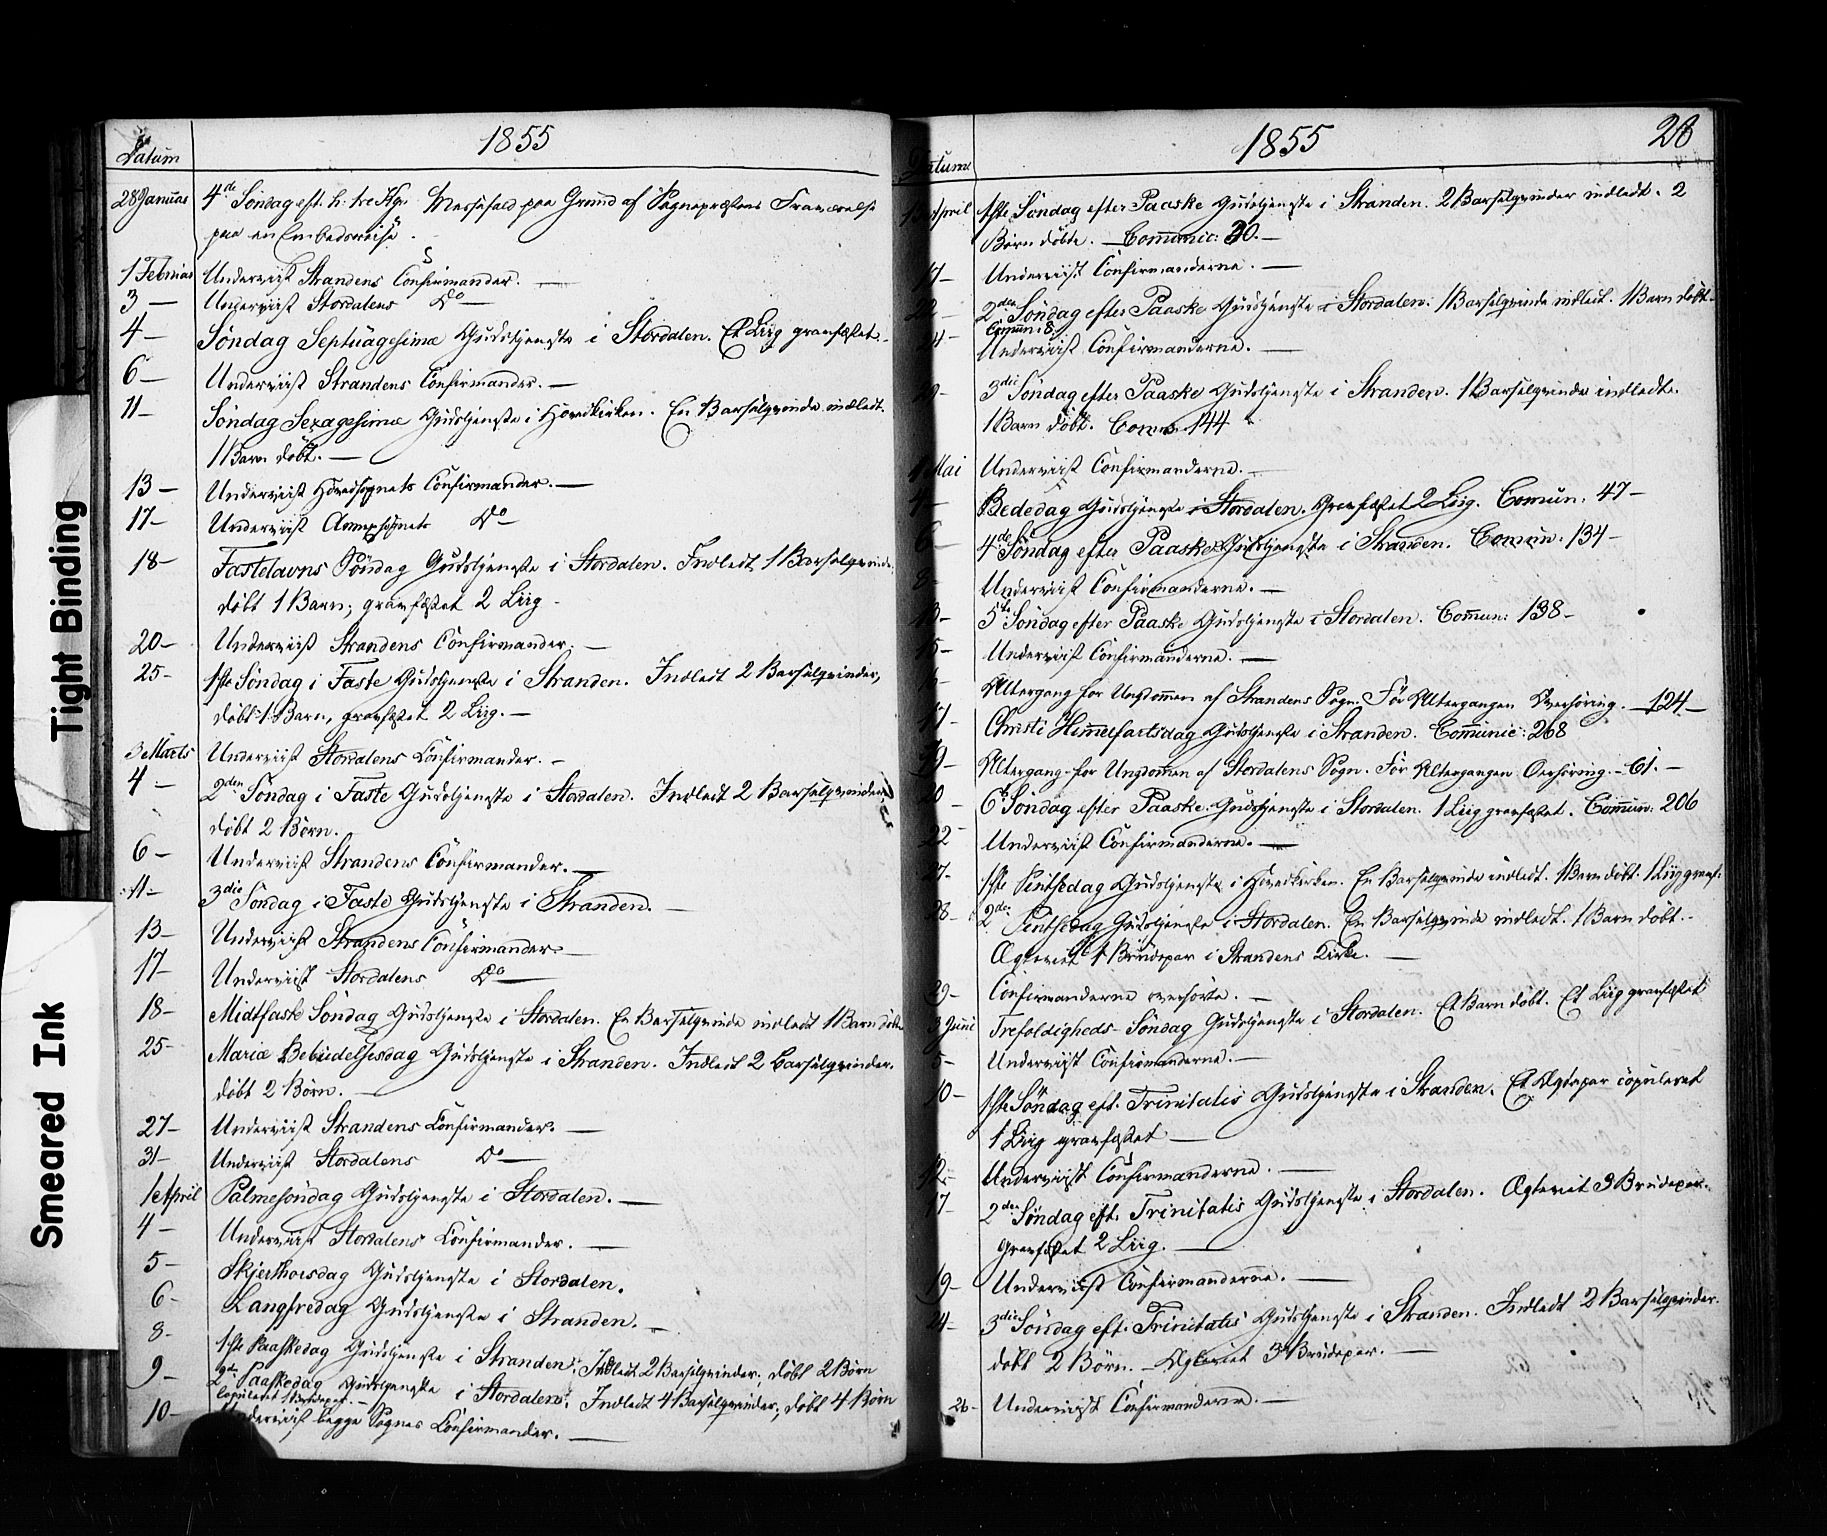 Tight Binding
Smeared Ink
1855
Datum
28 Januar 4de Søndag eft. h: tre Kgr Messefald paa Grund af Sognepræstens Fraværelse
paa en Embedsreise.
1 Februar Underviist Strandens Confirmander. —
3 — Underviist Stordalens Do —
4 — Søndag Septuagesimæ Gudstjeneste i Stordalen. Et Liig gravfæstet.
6 — Underviist Strandens Confirmander. —
11 — Søndag Sexagesimæ Gudstjeneste i Hovedkirken. En Barselqvinde indledt.
1 Barn døbt. —
13 — Underviist Hovedsognets Confirmander. —
17 — Underviist Annexsognets Do —
18 — Fastelavns Søndag Gudstjeneste i Stordalen. Indledt 1 Barselqvinde,
døbt 1 Barn; gravfæstet 2 Liig —
20 — Underviist Strandens Confirmander. —
25 — 1ste Søndag i Faste Gudstjeneste i Stranden. Indledt 2 Barselqvinder,
døbt 1 Barn, gravfæstet 2 Liig. —
3 Marts Underviist Stordalens Confirmander. —
4 — 2den Søndag i Faste Gudstjeneste i Stordalen. Indledt 2 Barselqvinder
døbt 2 Børn.
6 — Underviist Strandens Confirmander. —
11 — 3die Søndag i Faste Gudstjeneste i Stranden. —
13 — Underviist Strandens Confirmander. —
17 — Underviist Stordalens Do —
18 — Midtfaste Søndag Gudstjeneste i Stordalen. En Barselqvinde indledt 1 Barn døbt
25 — Mariæ Bebudelsesdag Gudstjeneste i Stranden. Indledt 2 Barselqvinder.
døbt 2 Børn. —
27 — Underviist Strandens Confirmander. —
31 — Underviist Stordalens Do —
1 April Palmesøndag Gudstjeneste i Stordalen. —
4 — Underviist Stordalens Confirmander. —
5 — Skjerthorsdag Gudstjeneste i Stordalen.
6 — Langfredag Gudstjeneste i Stranden. —
8 — 1ste Paaskedag Gudstjeneste i Stranden; Indledt 2 Barselqvinder; døbt 2 Børn
9 — 2den Paaskedag Gudstjeneste i Stordalen; Indledt 4 Barselqvinder; døbt 4 Børn
Copuleret 1 Brudepar. —
10 — Underviist begge Sognes Confirmander. —
1855
28
Datum
April 1ste Søndag efter Paaske Gudstjeneste i Stranden. 2 Barselqvinder indledt. 2
Børn døbte. — Communic: 30. —
17 — Underviist Confirmanderne. —
22 — 2den Søndag efter Paaske Gudstjeneste i Stordalen. 1 Barselqvinde indledt. 1 Barn døbt.
Commun: 8.
24 — Underviist Confirmanderne. —
29 — 3die Søndag efter Paaske Gudstjeneste i Stranden. 1 Barselqvinde indledt.
1 Barn døbt. Comm. 144
1 Mai Underviist Confirmanderne. —
4 — Bededag Gudstjeneste i Stordalen. Gravfæstet 2 Liig. Comun: 47 —
6 — 4de Søndag efter Paaske Gudstjeneste i Stranden. Comun: 134 —
8 — Underviist Confirmanderne. —
13 — 5te Søndag efter Paaske Gudstjeneste i Stordalen. Commun: 138 —
15 — Underviist Confirmanderne. —
Altergang for Ungdommen af Strandens Sogn. Før Altergangen Overhøring. — 124 —
17 — Christi Himmelfartsdag Gudstjeneste i Stranden. Communic: 268
19 — Altergang for Ungdommen af Stordalens Sogn. Før Altergangen Overhøring. — 61. —
20 — 6te Søndag efter Paaske Gudstjeneste i Stordalen. 1 Liig gravfæstet. Commun: 206
22 — Underviist Confirmanderne. —
27 — 1ste Pintsedag Gudstjeneste i Hovedkirken. En Barselqvinde indledt. 1 Barn døbt. 1 Liig gravf.
28 — 2den Pintsedag Gudstjeneste i Stordalen. En Barselqvinde indledt. 1 Barn døbt. —
Ægteviet 1 Brudepar i Strandens Kirke. —
29 — Confirmanderne overhørte. —
3 Juni Trefoldigheds-Søndag Gudstjeneste i Stordalen. Et Barn døbt. Et Liig gravfæstet
5 — Underviist Confirmanderne. —
10 — 1ste Søndag eft. Trinitatis Gudstjeneste i Stranden. Et Ægtepar copuleret
1 Liig gravfæstet —
12 — Underviist Confirmanderne. —
17 — 2den Søndag eft. Trinitatis Gudstjeneste i Stordalen. Ægteviet 3 Brudepar.
Gravfæstet 2 Liig. —
19 — Underviist Confirmanderne. —
24 — 3die Søndag eft. Trinitatis Gudstjeneste i Stranden. Indledt 2 Barselqvinder.
døbt 2 Børn. — Ægteviet 3 Brudepar. —
26 — Underviist Confirmanderne. —